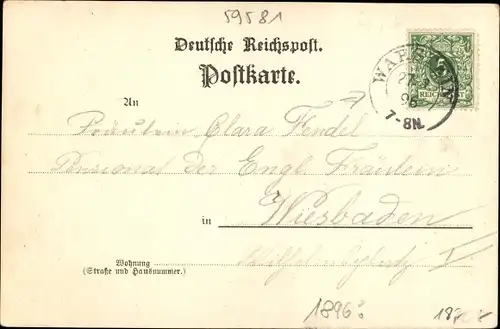 59581
Deutsche Reichspost.
Postkarte.
5
REICHSPOST
27 3
96
7-8N.
An
Fräulein Clara Fendel
Pensionat der Engl. Fräulein
in Wiesbaden
Wohnung
(Straße und Hausnummer.)
1896?